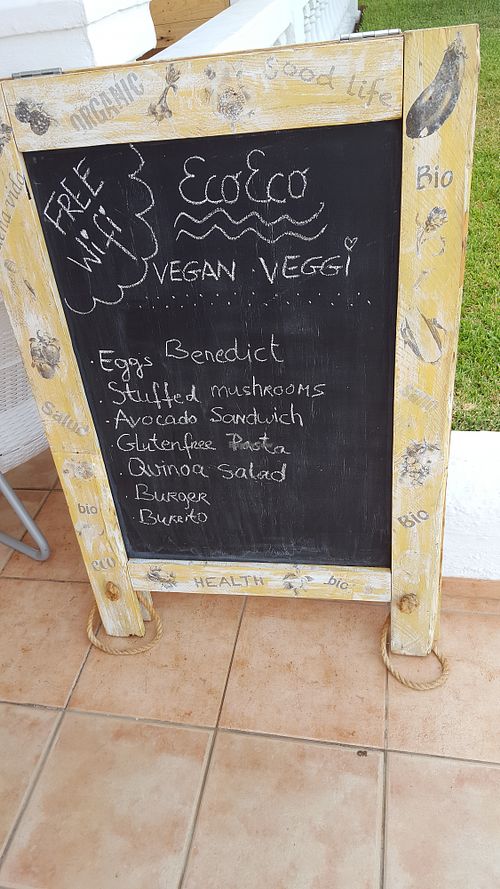 ORGANIC
Good life
Bio
FREE
Wifi
EcoEco
VEGAN VEGGi
· Eggs Benedict
· Stuffed mushrooms
· Avocado Sandwich
· Glutenfree Pasta
· Quinoa Salad
· Burger
· Burrito
Salud
bio
eco
Bio
HEALTH
bio